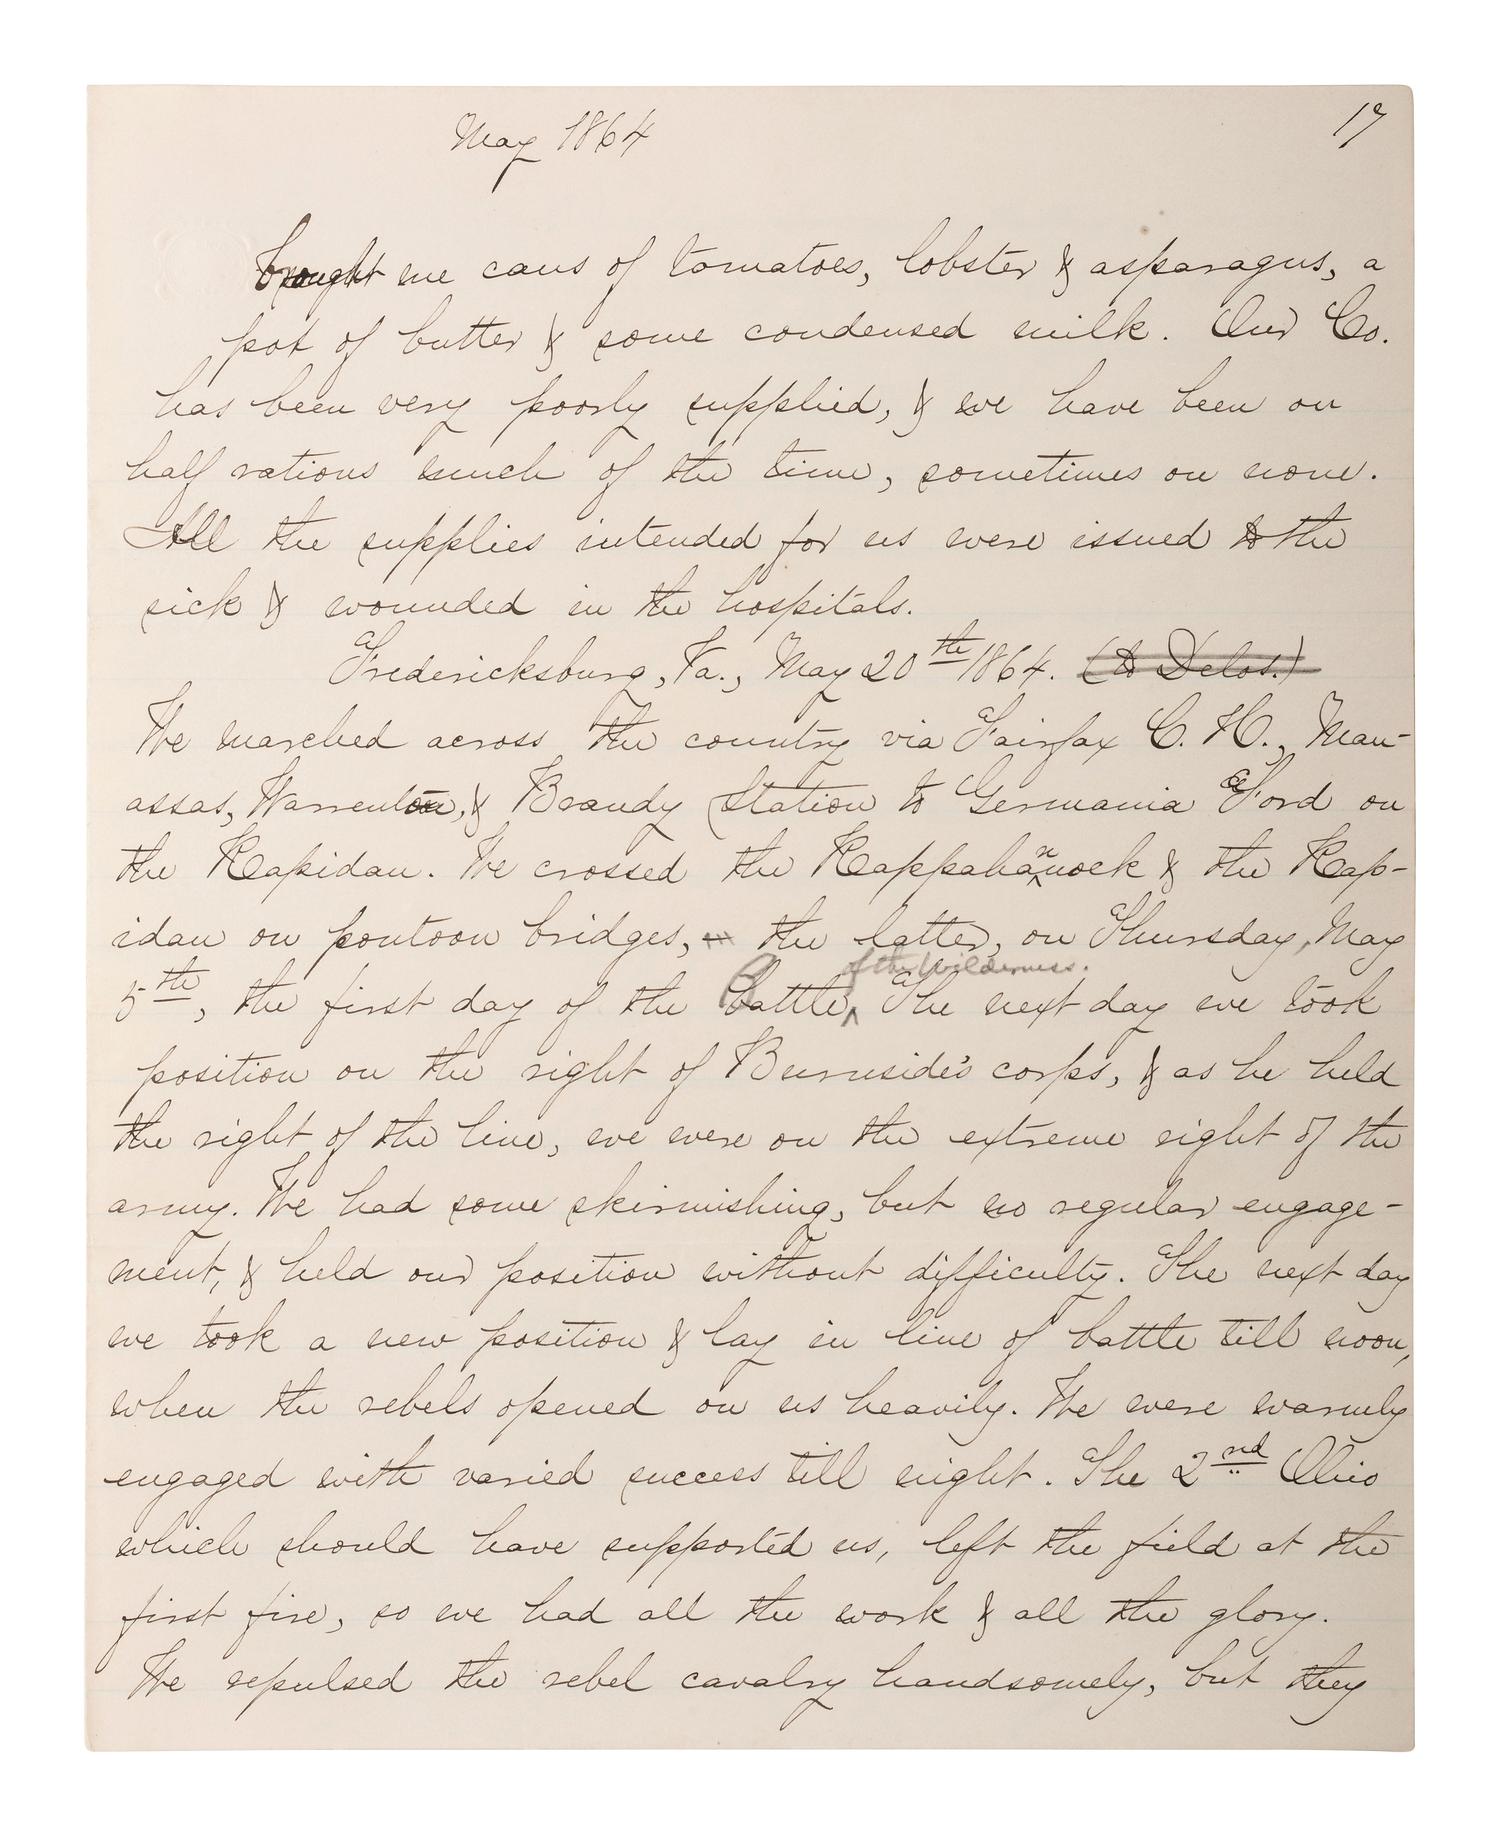 May 1864
17
brought me cans of tomatoes, lobster & asparagus, a
pot of butter & some condensed milk. Our Co.
has been very poorly supplied, & we have been on
half rations much of the time, sometimes on none.
All the supplies intended for us were issued to the
sick & wounded in the hospitals.
Fredericksburg, Va., May 20th 1864. (to Delos.)
We marched across the country via Fairfax C. H., Man-
assas, Warrenton, & Brandy Station to Germania Ford on
the Rapidan. We crossed the Rappahannock & the Rap-
idan on pontoon bridges, the latter, on Thursday, May
5th, the first day of the Battle of the Wilderness. The next day we took
position on the right of Burnside's corps, & as he held
the right of the line, we were on the extreme right of the
army. We had some skirmishing, but no regular engage-
ment, & held our position without difficulty. The next day
we took a new position & lay in line of battle till noon,
when the rebels opened on us heavily. We were warmly
engaged with varied success till night. The 2nd Ohio
which should have supported us, left the field at the
first fire, so we had all the work & all the glory.
We repulsed the rebel cavalry handsomely, but they